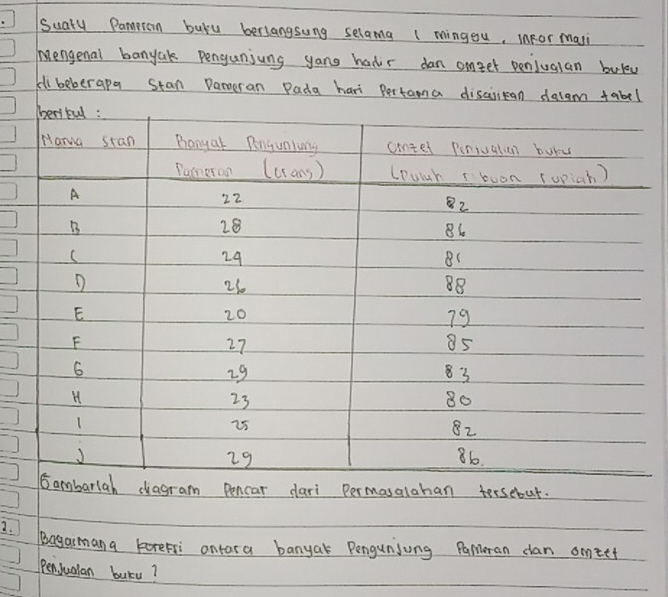 Suatu Pameran buku berlangsung selama 1 minggu. Informasi
Mengenai banyak Pengunjung yang hadir dan omzet penjualan buku
di beberapa Stan Pameran Pada hari Pertama disajikan dalam tabel
berikut :
Nama Stan Banyak Pengunjung Omzet Penjualan buku
Pameran (orang) (Puluh ribuan rupiah)
A 22 82
B 28 86
C 24 81
D 26 88
E 20 79
F 27 85
G 29 83
H 23 80
I 25 82
J 29 86.
Gambarlah diagram Pencar dari Permasalahan tersebut.
2. Bagaimana Korelsi antara banyak Pengunjung Pameran dan omzet
Penjualan buku ?